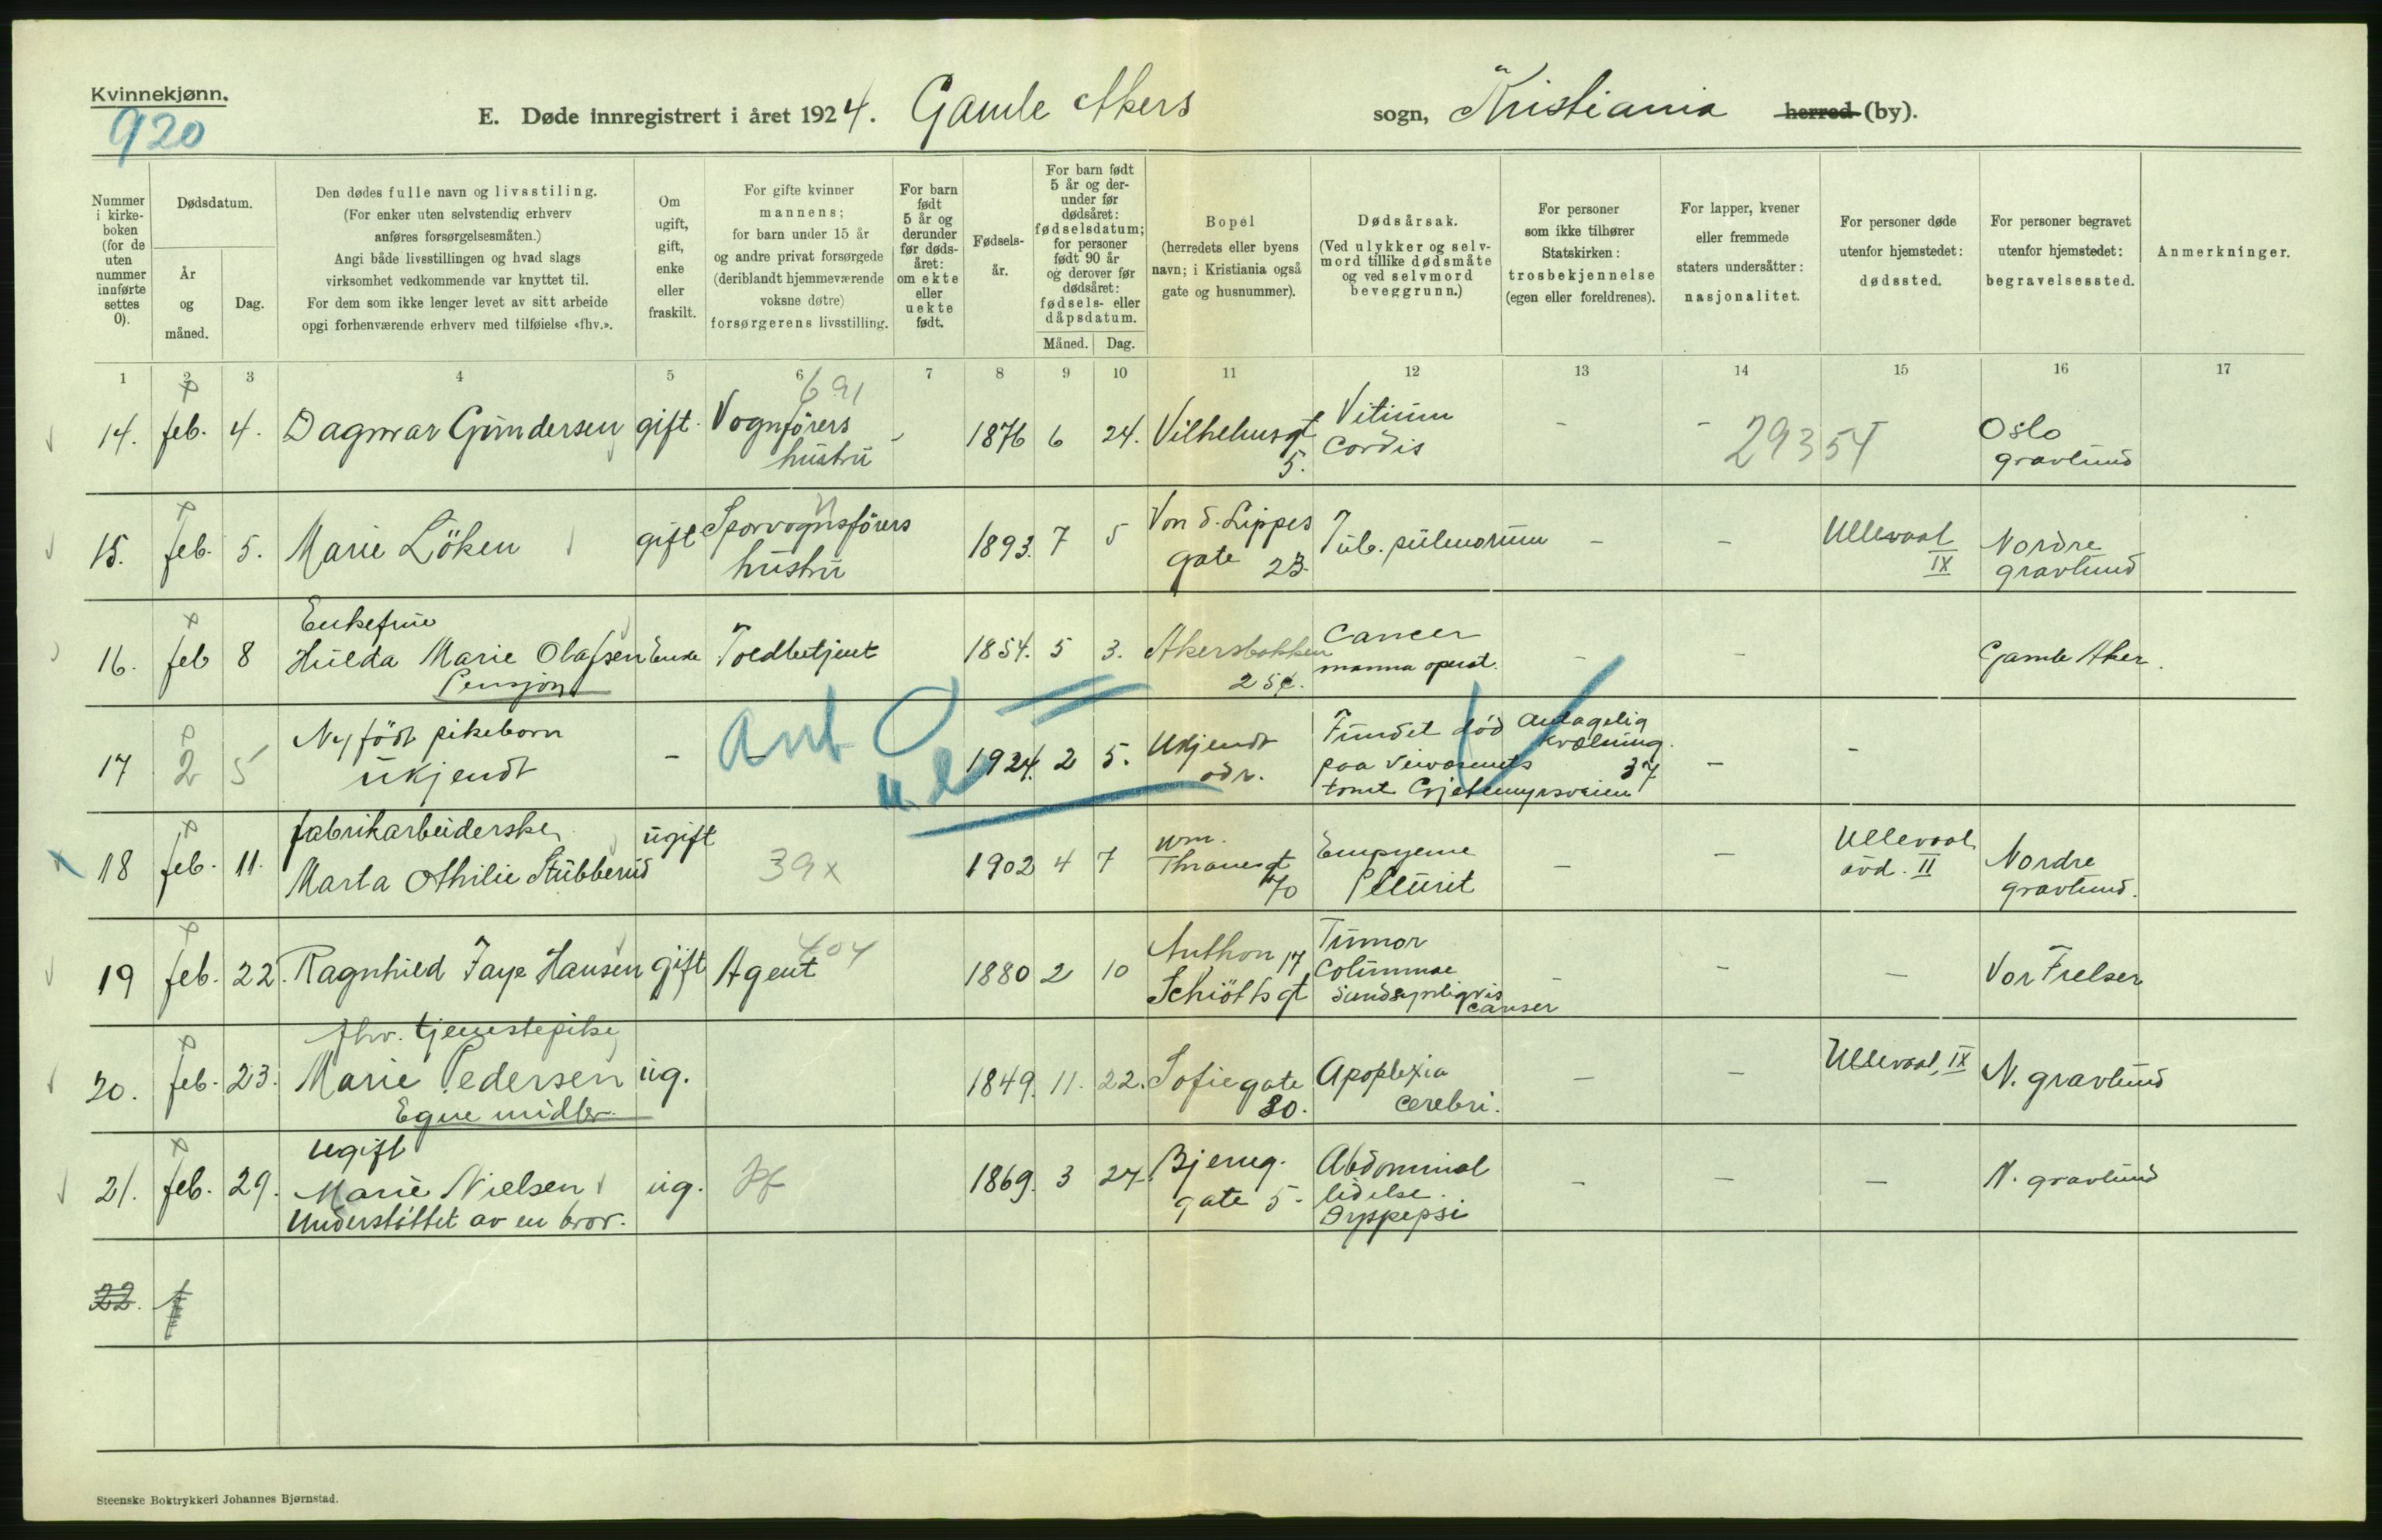 Kvinnekjønn.
920
E. Døde innregistrert i året 1924. Gamle Akers sogn, Kristiania herred (by).
Nummer i kirkeboken (for de uten nummer innførte settes 0).
Dødsdatum.
År og måned.
Dag.
Den dødes fulle navn og livsstiling.
(For enker uten selvstendig erhverv
anføres forsørgelsesmåten.)
Angi både livsstillingen og hvad slags
virksomhet vedkommende var knyttet til.
For dem som ikke lenger levet av sitt arbeide
opgi forhenværende erhverv med tilføielse «fhv.».
Om ugift, gift, enke eller fraskilt.
For gifte kvinner
mannens;
for barn under 15 år
og andre privat forsørgede
(deriblandt hjemmeværende
voksne døtre)
forsørgerens livsstilling.
For barn født 5 år og derunder før dødsåret: om ekte eller uekte født.
Fødselsår.
For barn født 5 år og derunder før dødsåret: fødselsdatum; for personer født 90 år og derover før dødsåret: fødsels- eller dåpsdatum.
Måned. Dag.
Bopel
(herredets eller byens
navn; i Kristiania også
gate og husnummer).
Dødsårsak.
(Ved ulykker og selvmord tillike dødsmåte og ved selvmord beveggrunn.)
For personer
som ikke tilhører
Statskirken:
trosbekjennelse
(egen eller foreldrenes).
For lapper, kvener
eller fremmede
staters undersåtter:
nasjonalitet.
For personer døde
utenfor hjemstedet:
dødssted.
For personer begravet
utenfor hjemstedet:
begravelsessted.
Anmerkninger.
1 2 3 4 5 6 7 8 9 10 11 12 13 14 15 16 17
14. feb. 4. Dagmar Gundersen gift. Vognførers hustru 691 - 1876 6 24. Vilhelmsgt 5. Vitium Cordis - - 29354 Oslo gravlund
15. feb. 5. Marie Löken gift Sporvognsförers hustru 1893. 7 5 Von d. Lippes gate 23. Tub. pulmorum - - Ullevaal IX Nordre gravlund
16. feb 8 Enkefrue Hulda Marie Olafsen Pensjon Enke Toldbetjent 1854. 5 3. Akersbakken 25c. Cancer mamma operat. - - Gamle Aker.
17 2 5 Nyfödt pikebarn ukjendt - Ant 0 1924. 2 5. Ukjendt adr. Fundet död Antagelig kvælning. paa Veivæsenets tomt Gjetemyrsveien 37 - -
18 feb. 11. fabrikarbeiderske Marta Othilie Stubberud ugift 39x 1902 4 7 Wm. Thranesgt 70 Empyeme Pleurit - - Ullevaal avd. II Nordre gravlund.
19 feb. 22. Ragnhild Faye Hansen gift Agent 404 1880 2 10 Anthon Schiötts gt 17 Tumor Columnae sandsynligvis canser - - - Vor Frelser
20. feb. 23. fhv. tjenestepike Marie Pedersen Egne midler. ug. 1849. 11. 22. Sofiegate 30. Apoplexia cerebri. - - Ullevaal, IX N. gravlund
21. feb. 29. Ugift Marie Nielsen Understöttet av en bror. ug. 1869. 3 27. Bjerreg. gate 5. Abdominal lidelse. Dyspepsi - - - N. gravlund
22. f
Steenske Boktrykkeri Johannes Bjørnstad.